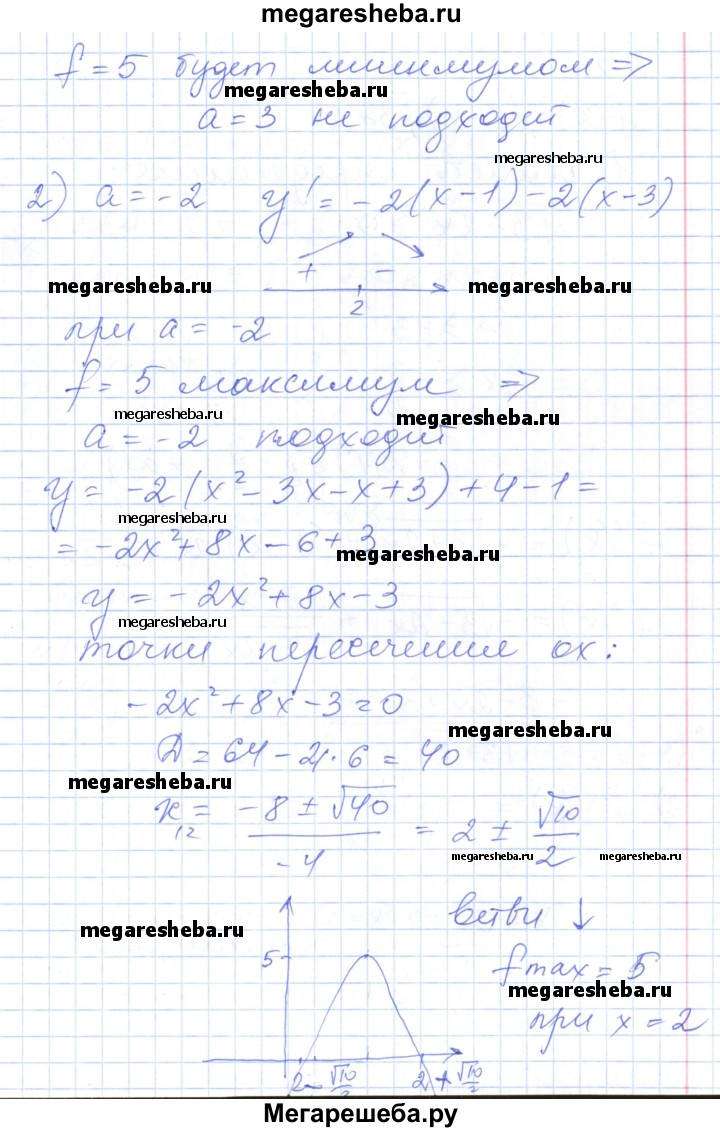 megaresheba.ru
f = 5 будет минимумом =>
megaresheba.ru
a = 3 не подходит
megaresheba.ru
2) a = -2 y' = -2(x-1) - 2(x-3)
+ -
megaresheba.ru megaresheba.ru
2
при a = -2
f = 5 максимум =>
megaresheba.ru megaresheba.ru
a = -2 подходит
y = -2(x² - 3x - x + 3) + 4 - 1 =
megaresheba.ru
= -2x² + 8x - 6 + 3
megaresheba.ru
y = -2x² + 8x - 3
megaresheba.ru
точки пересечения ox:
-2x² + 8x - 3 = 0
megaresheba.ru
D = 64 - 4·6 = 40
megaresheba.ru
x₁₂ = (-8 ± √40)/-4 = 2 ± √10/2
megaresheba.ru megaresheba.ru
ветви ↓
megaresheba.ru
5 fmax = 5
megaresheba.ru
при x = 2
2 - √10/2 2 + √10/2
Мегарешеба.ру